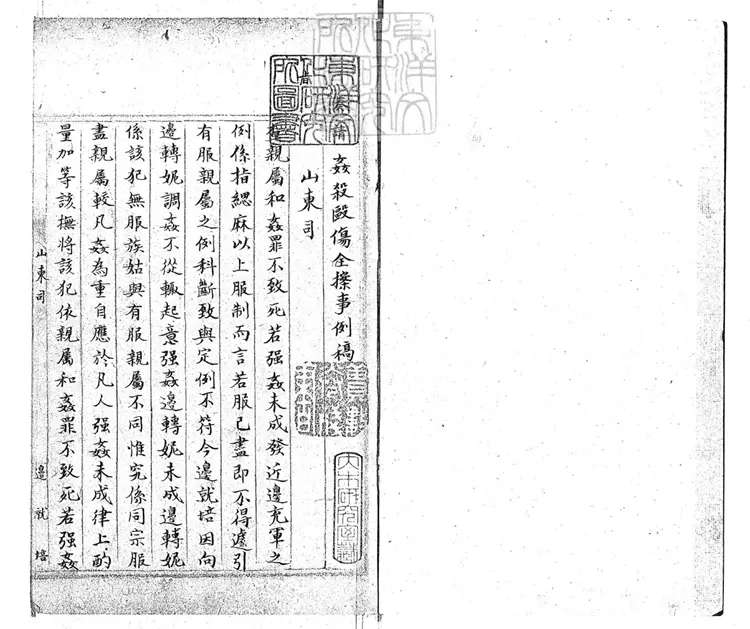 姦殺毆傷全案事例稿
山東司
親屬和姦罪不致死若强姦未成發近邊充軍之
例係指緦麻以上服制而言若服已盡即不得遽引
有服親屬之例科斷致與定例不符今邊就培因向
邊轉妮調姦不從輒起意强姦邊轉妮未成邊轉妮
係該犯無服族姑與有服親屬不同惟究係同宗服
盡親屬較凡姦為重自應於凡人强姦未成律上酌
量加等該撫將該犯依親屬和姦罪不致死若强姦
山東司 邊就培